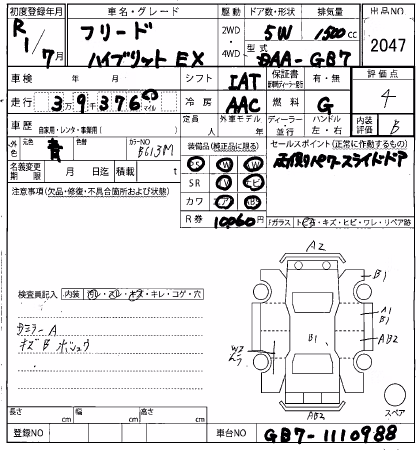 初度登録年月 車名・グレード 駆動 ドア数・形状 排気量 出品NO
R1/7月 フリード ハイブリット EX 2WD 4WD 5W 1500cc 2047
型式 DAA-GB7
車検 年 月 シフト IAT 保証書 有・無 評価点 4
走行 39376 マイル 冷房 AAC 燃料 G
車歴 自家用・レンタ・事業用( ) 定員 人 外車モデル 年 ディーラー 並行 ハンドル 左・右 内装評価 B
外色 元色 青 色替 カラーNO B613M 装備品(純正品に限る) セールスポイント(正常に作動するもの)
両側パワースライドドア
名義変更期限 月 日迄 積載 t SR カワ
注意事項(欠品・修復・不具合箇所および状態) R券 10,060円
Fガラス トビ・キズ・ヒビ・ワレ・リペア跡
A2
検査員記入 内装 コレ・スレ・キス・キレ・コゲ・穴 B1
A1
B1
カミラー A B1 AB2
キズ B ホシュウ W2
AB2 スペア
長さ cm 幅 cm 高さ cm
登録NO 車台NO GB7-1110988